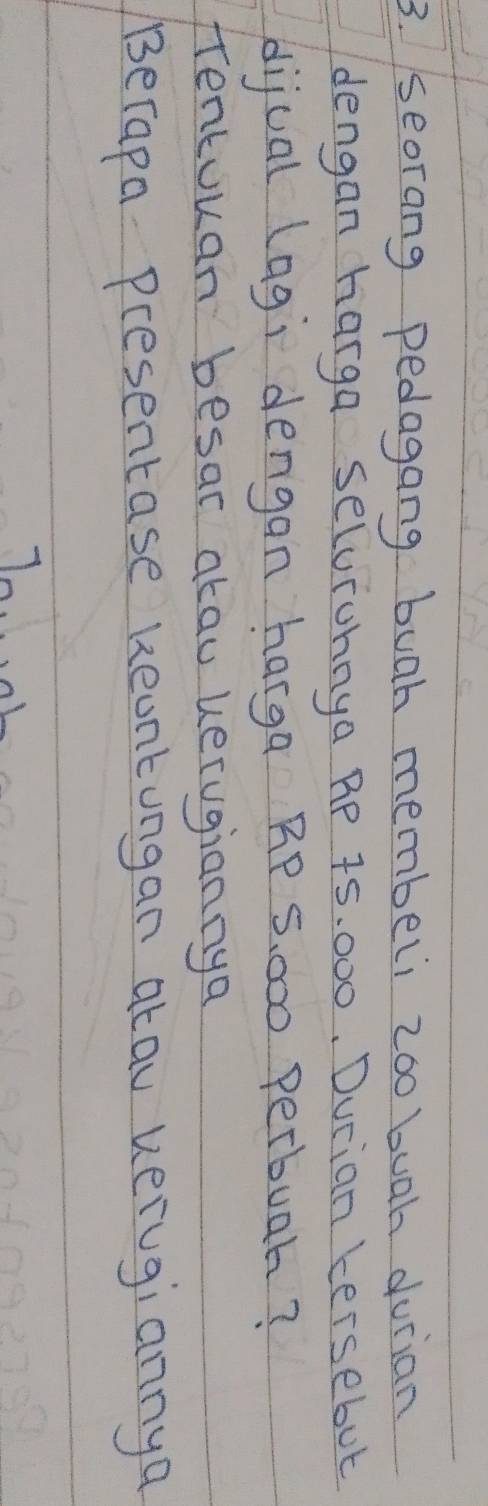 3. seorang pedagang buah membeli 200 buah durian
dengan harga seluruhnya Rp 75.000, Durian tersebut
dijual lagi dengan harga Rp 5.000 perbuah?
Tentukan besar atau kerugiannya
Berapa presentase keuntungan atau kerugiannya